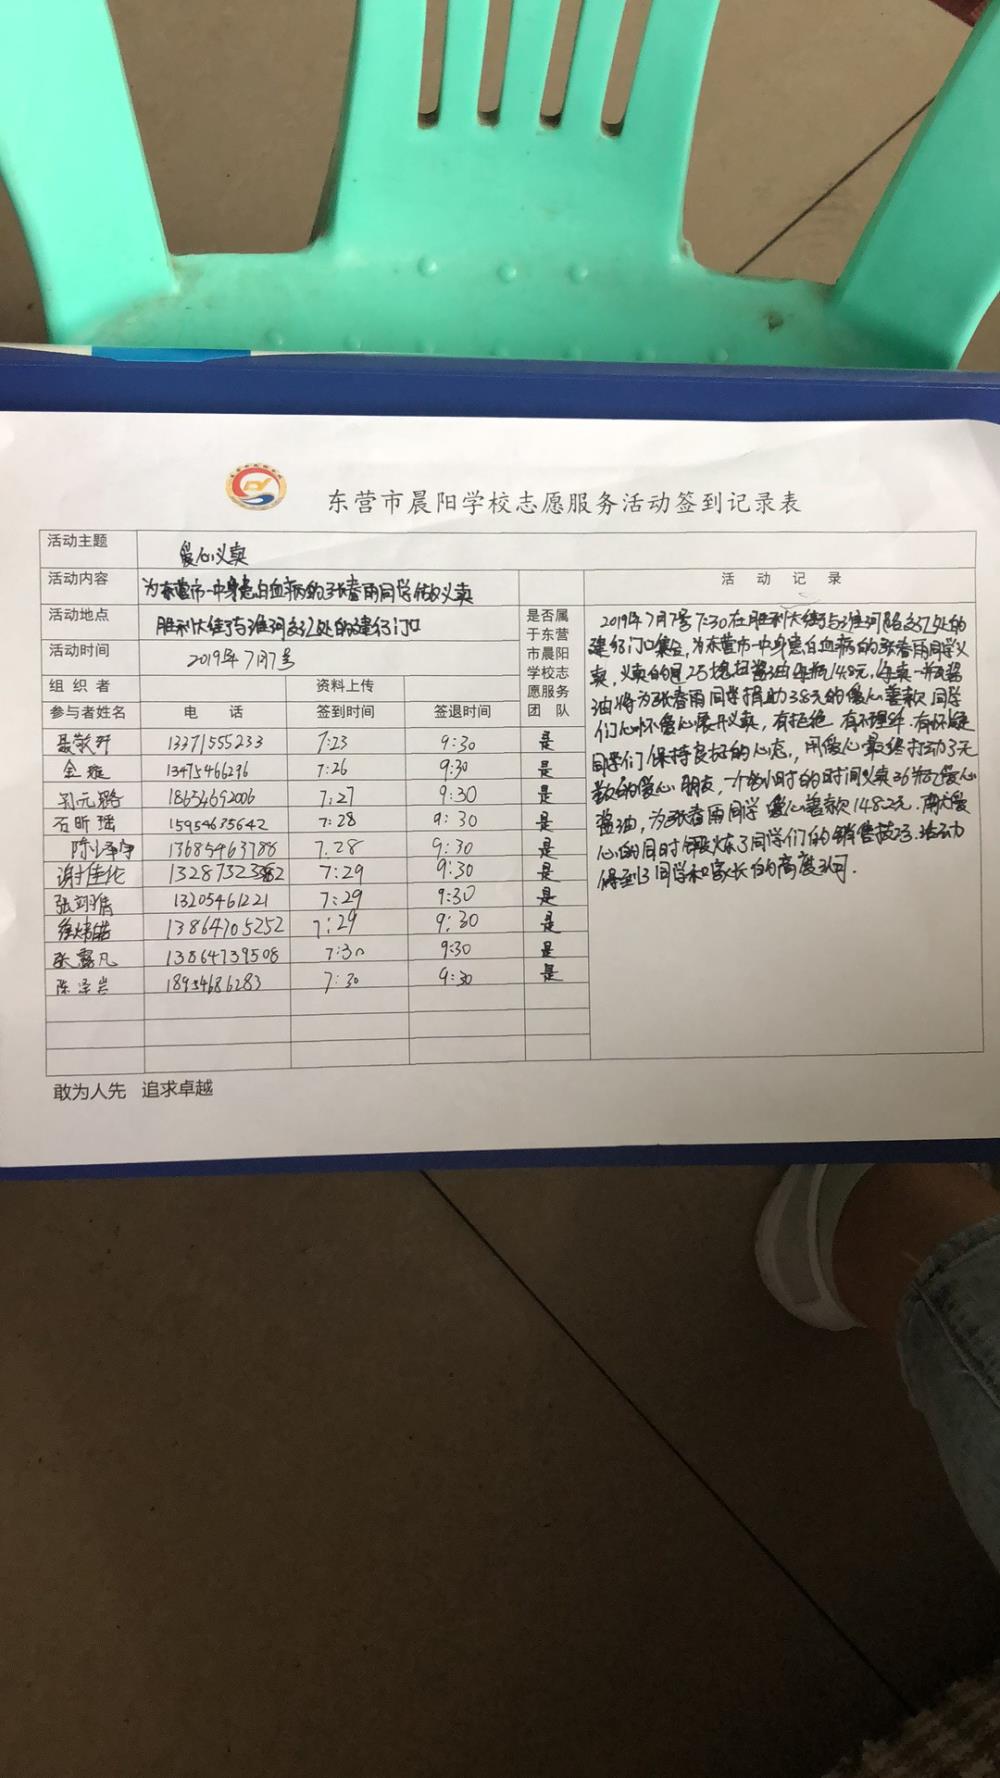 东营市晨阳学校志愿服务活动签到记录表
活动主题 爱心义卖
活动内容 为东营市一中身患白血病的张春雨同学做义卖
活动地点 胜利大街与淮河路交汇处的建行门口
活动时间 2019年7月7号
组织者 资料上传
参与者姓名 电话 签到时间 签退时间 是否属于东营市晨阳学校志愿服务团队
13371555233 7:23 9:30 是
金璇 13475466296 7:26 9:30 是
18654692006 7:27 9:30 是
石昕瑶 15954635642 7:28 9:30 是
13685463788 7.28 9:30 是
谢佳伦 1328732 7:29 9:30 是
张翊 13205461221 7:29 9:30 是
徐炜皓 13864705252 7:29 9:30 是
张露凡 13864739508 7:30 9:30 是
陈泽岩 18954686283 7:30 9:30 是
活动记录
2019年7月7号7:30在胜利大街与淮河路交汇处的
建行门口集合,为东营市一中身患白血病的张春雨同学义
卖,义卖的是 酱油每瓶14.8元,每卖一瓶酱
油将为张春雨同学捐助3.8元的爱心善款.同学
们心怀爱心展开义卖,有拒绝 有不理解.有怀疑
同学们保持良好的心态,用爱心最终打动了无
数的爱心朋友,一个 小时的时间义卖36瓶爱心
酱油,为张春雨同学 爱心善款148.2元.献爱
心的同时锻炼了同学们的销售技巧.活动
得到了同学和家长们的高度认可.
敢为人先 追求卓越